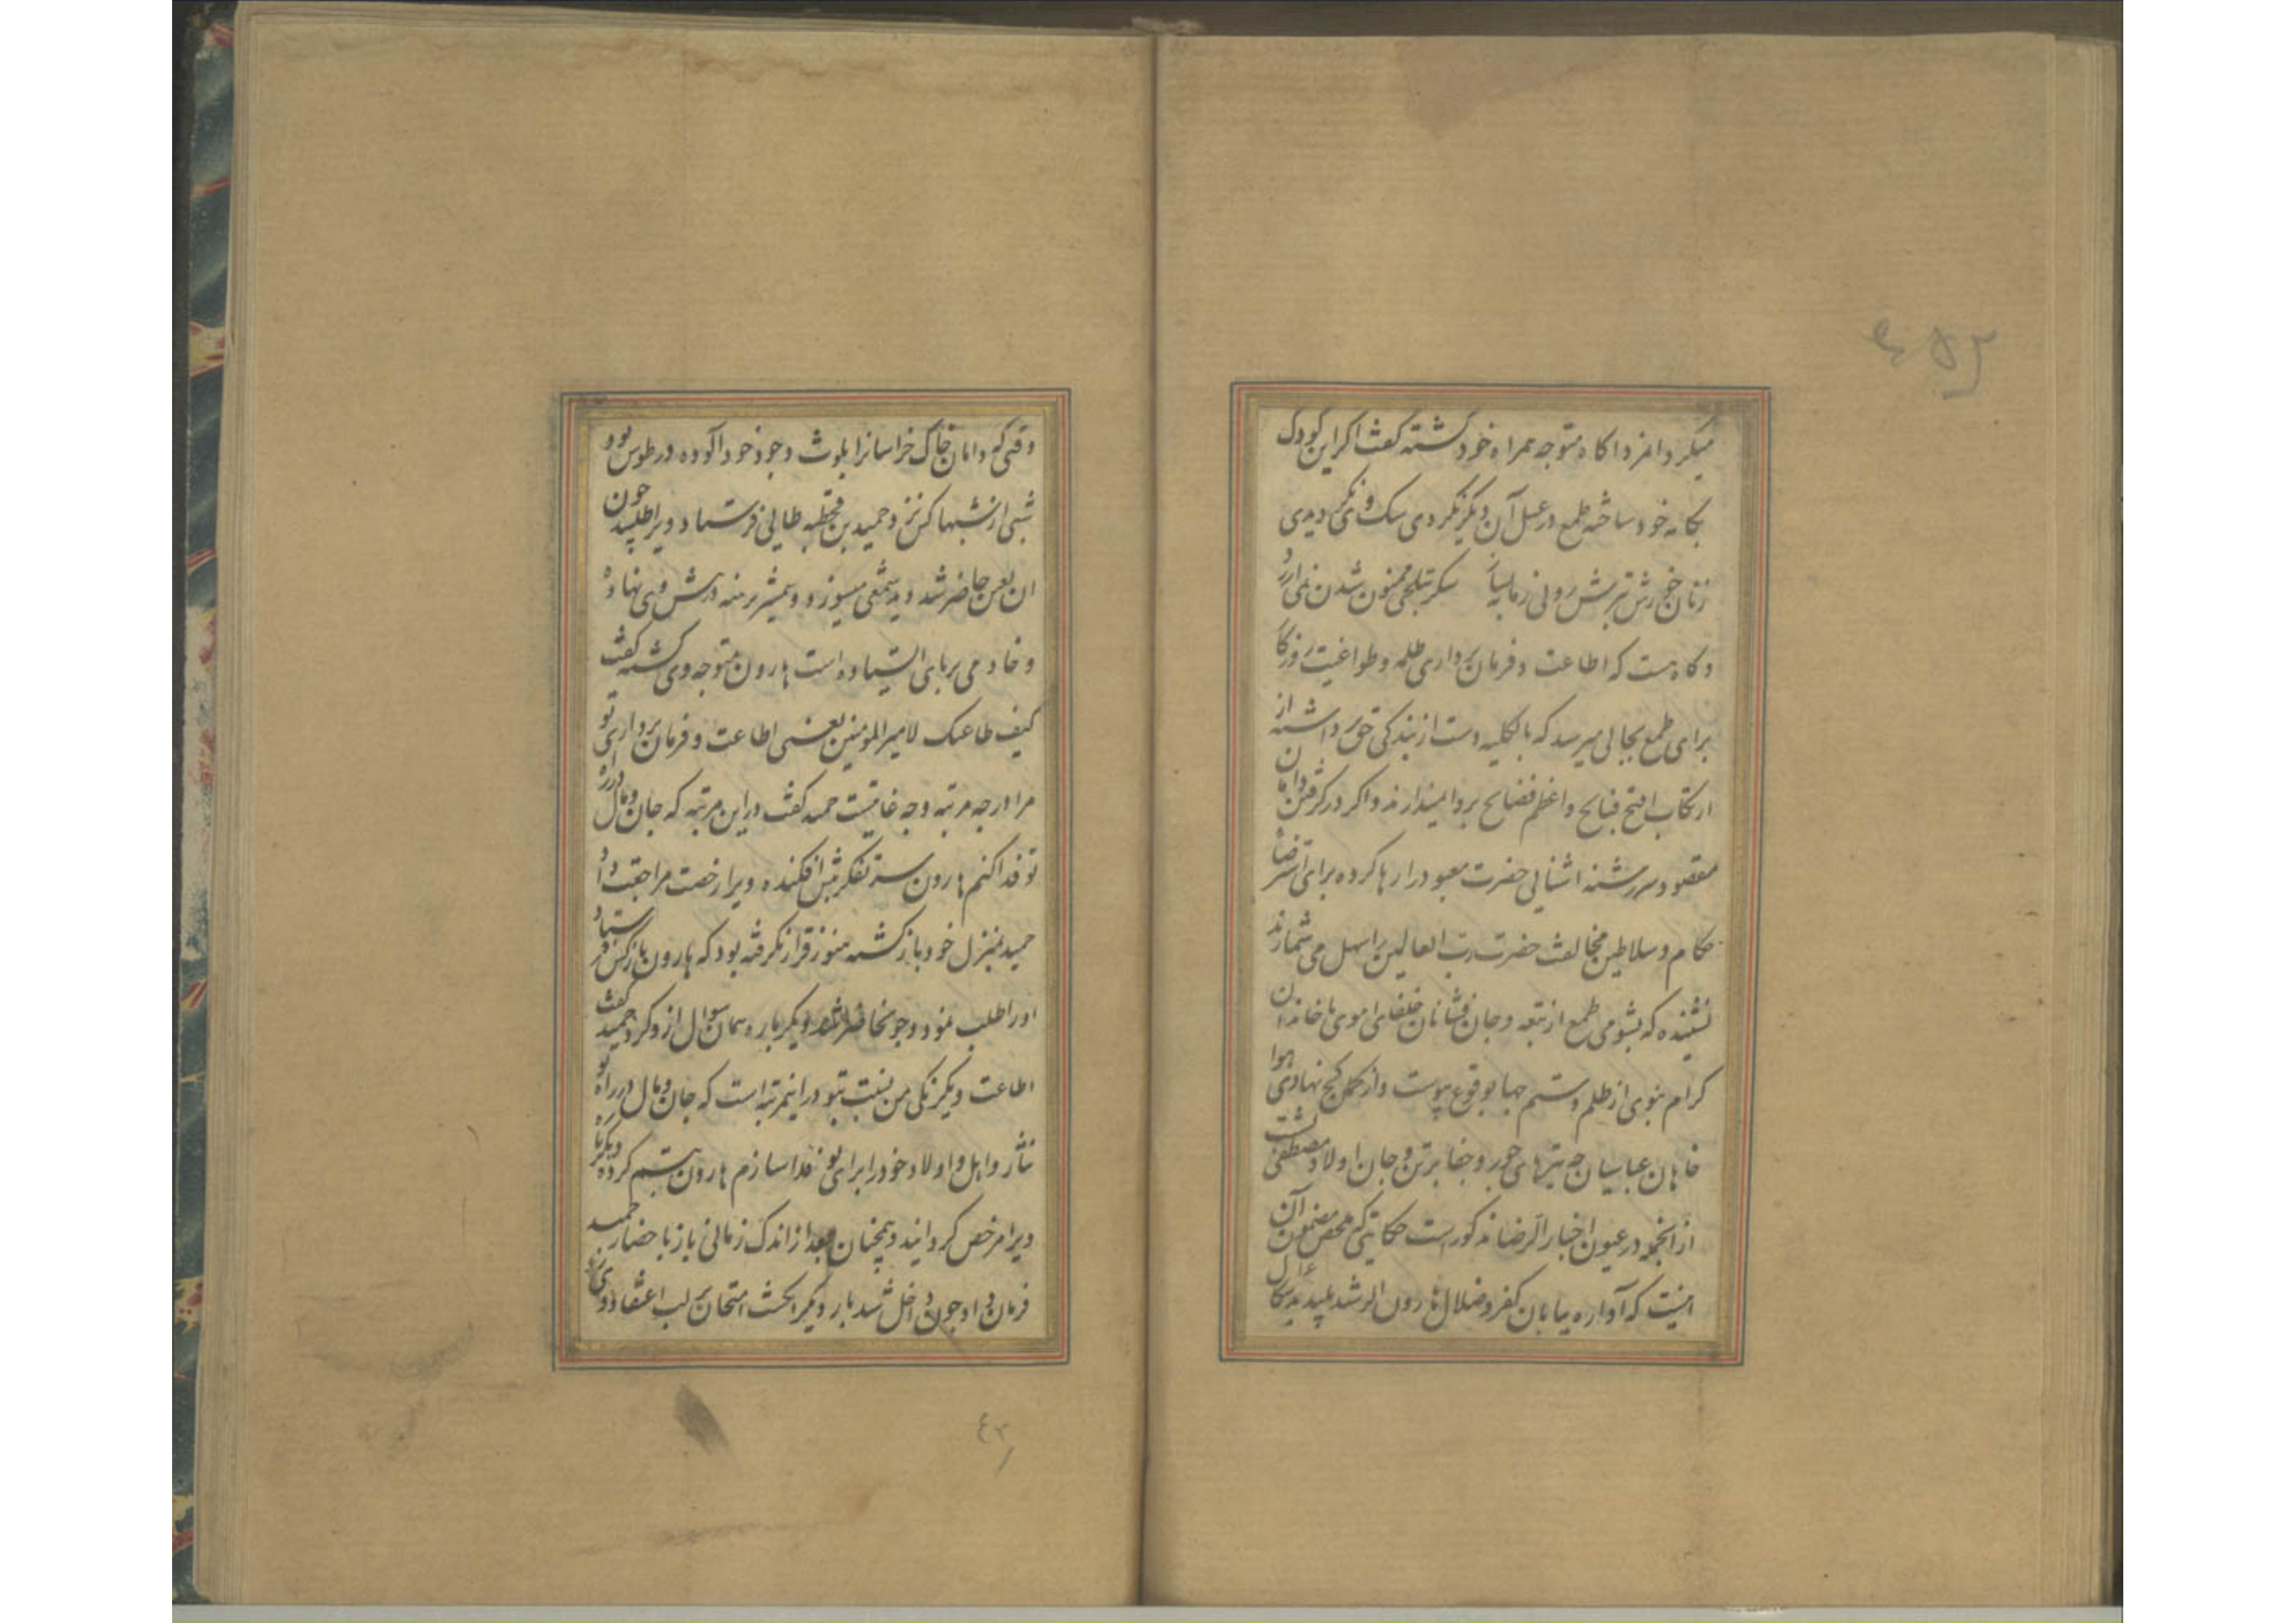 میکرد امرد اکاه متوجه همراه خود کشته کفت اکر این کودک
بخانه خود ساخته طمع در عسل آن دیکر نکردی سک وی نکردیدی
زنان خورش ترش رونی زمانیا سکر تلخی ممنون شدن نمی ارزد
و کاه هست که اطاعت و فرمان برداری ظلمه و طواغیت روزکار
برای طمع بجالی میرسد که بالکلیه دست از بندکی حق برداشته از
ارتکاب اقبح قبایح و اعظم فضایح پروا نمیدارند و اکر در کرفتن دامان
مقصود سررشته اشنائی حضرت معبود را رها کرده برای استرضاء
حکام و سلاطین مخالفت حضرت رب العالمین را سهل می شمارند
نشنیده که بشومی طمع از تبعه و جان فشانان خلفای اموی با خاندان
کرام نبوی از ظلم و ستم جها بوقوع پیوست و از کمان کج نهادی هوا
خاهان عباسیان چه تیرهای جور و جفا بر تن و جان اولاد مصطفی نشست
از انجمله در عیون اخبار الرضا مذکور است حکایتی که ملخص مضمون آن
اینست که آواره بیابان کفر و ضلال هارون الرشید پلید بدسکال
وقتی که دامان خاک خراسانرا بلوث وجود خود آلوده در طوس بود
شبی از شبها کس نزد حمید بن قحطبه طائی فرستاد و ویرا طلبید چون
ان لعین حاضر شد دید شمعی میسوزد و شمشیر برهنه در پیش وی نهاده
و خادمی بر پای ایستاده است هارون متوجه وی کشته کفت
کیف طاعتک لامیر المومنین یعنی اطاعت و فرمان برداری تو
مرا در چه مرتبه و چه غایتست حمید کفت در این مرتبه که جان و مال در راه
تو فدا کنم هارون سر تفکر پیش افکنده ویرا رخصت مراجعت داد
حمید بمنزل خود باز کشته هنوز قرار نکرفته بود که هارون باز کس فرستاد
اورا طلب نمود و چون حاضر شد دیکر باره همان سوال از و کرد حمید کفت
اطاعت و یکرنکی من نسبت بتو در اینمرتبه است که جان و مال در راه تو
نثار و اهل و اولاد خود را برای تو فدا سازم هارون تبسم کرده دیکر باره
ویرا مرخص کردانید و همچنان بعد از اندک زمانی باز باحضار حمید
فرمان داد چون داخل شد بار دیکر انکشت امتحان بر لب اعتقاد وی
٤٣